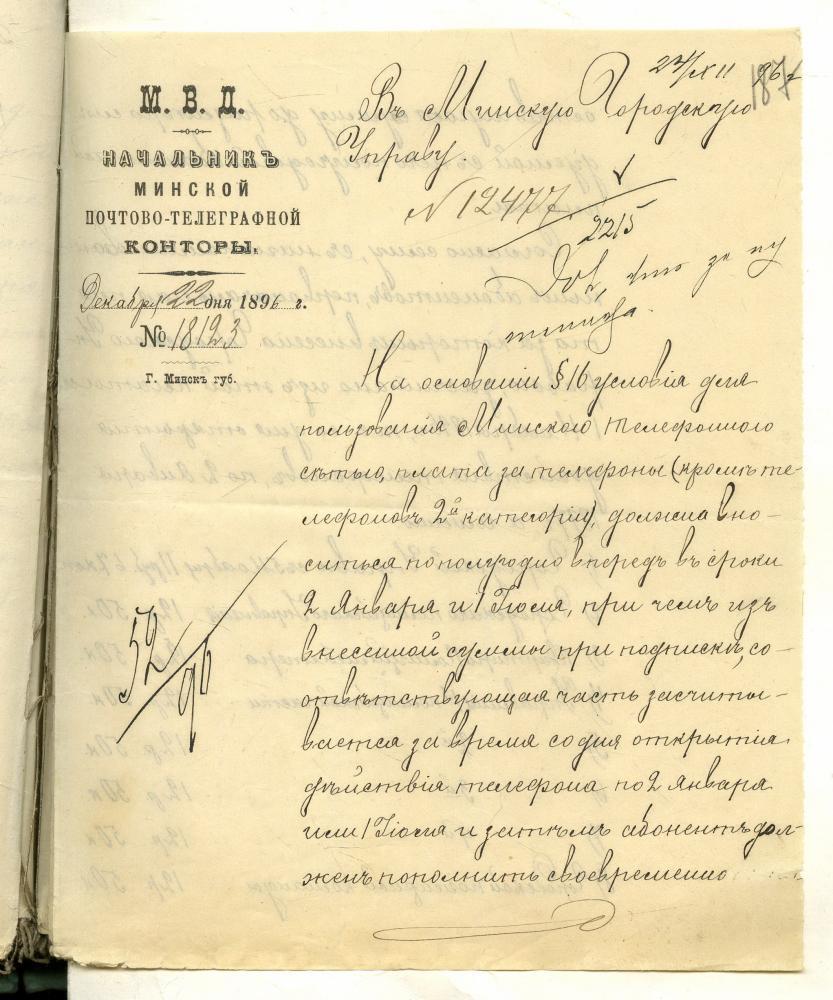 М. В. Д.
НАЧАЛЬНИКЪ
МИНСКОЙ
ПОЧТОВО-ТЕЛЕГРАФНОЙ
КОНТОРЫ.
Декабря 22 дня 1896 г.
№ 18123
Г. Минскъ губ.
24/XII 96 г
187
Въ Минскую Городскую
Управу.
N 12477
2215
что за
На основаніи § 16 условія для
пользованія Минскою телефонною
сѣтью, плата за телефоны (кромѣ те-
лефоновъ 2й категоріи), должна вно-
ситься пополугодно впередъ въ сроки
2 Января и 1 Іюля, при чемъ изъ
внесенной суммы при подпискѣ, со-
отвѣтствующая часть засчиты-
вается за время со дня открытія
дѣйствія телефона по 2 Января
или 1 Іюля и затѣмъ абонентъ дол-
женъ пополнить своевременно
52/96